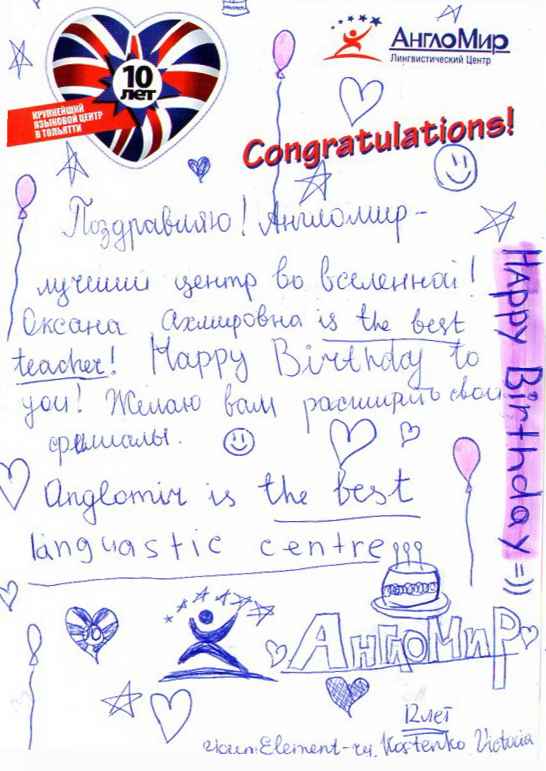 10
лет
КРУПНЕЙШИЙ
ЯЗЫКОВОЙ ЦЕНТР
В ТОЛЬЯТТИ
АнглоМир
Лингвистический Центр
Congratulations!
Поздравляю! Англомир -
лучший центр во вселенной!
Оксана Ахмировна is the best
teacher! Happy Birthday to
you! Желаю вам расширить свои
филиалы.
Anglomir is the best
linguastic centre
Happy Birthday =))
10
АнглоМир
12 лет
Element-ry. Kostenko Victoria